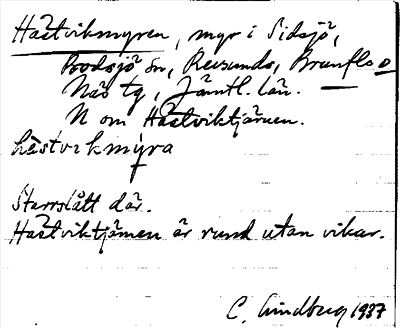 Hästvikmyren, myr i Sidsjö,
Bodsjö sn, Revsunds, Brunflo o
Näs tg, Jämtl. län.
N om Hästviktjärnen.
hèstvikmýra
Starrslått där.
Hästviktjärnen är rund utan vikar.
C. Lindberg 1937